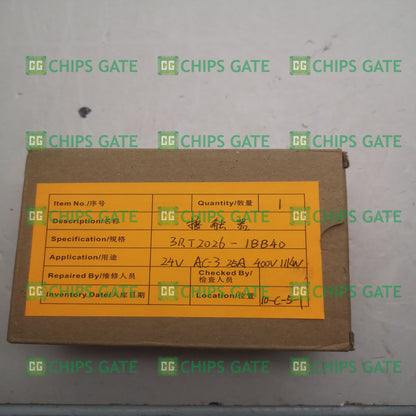 CHIPS GATE CHIPS GATE CHIPS GATE
CHIPS GATE CHIPS GATE CHIPS GATE
CHIPS GATE CHIPS GATE CHIPS GATE
Item No./序号 Quantity/数量 1
Description/名称 接触器
Specification/规格 3RT2026-1BB40
Application/用途 24V AC-3 25A 400V 11KW
Repaired By/维修人员 Checked By/检查人员
Inventory Date/入库日期 Location/位置 10-C-5-1
CHIPS GATE CHIPS GATE CHIPS GATE
CHIPS GATE CHIPS GATE CHIPS GATE